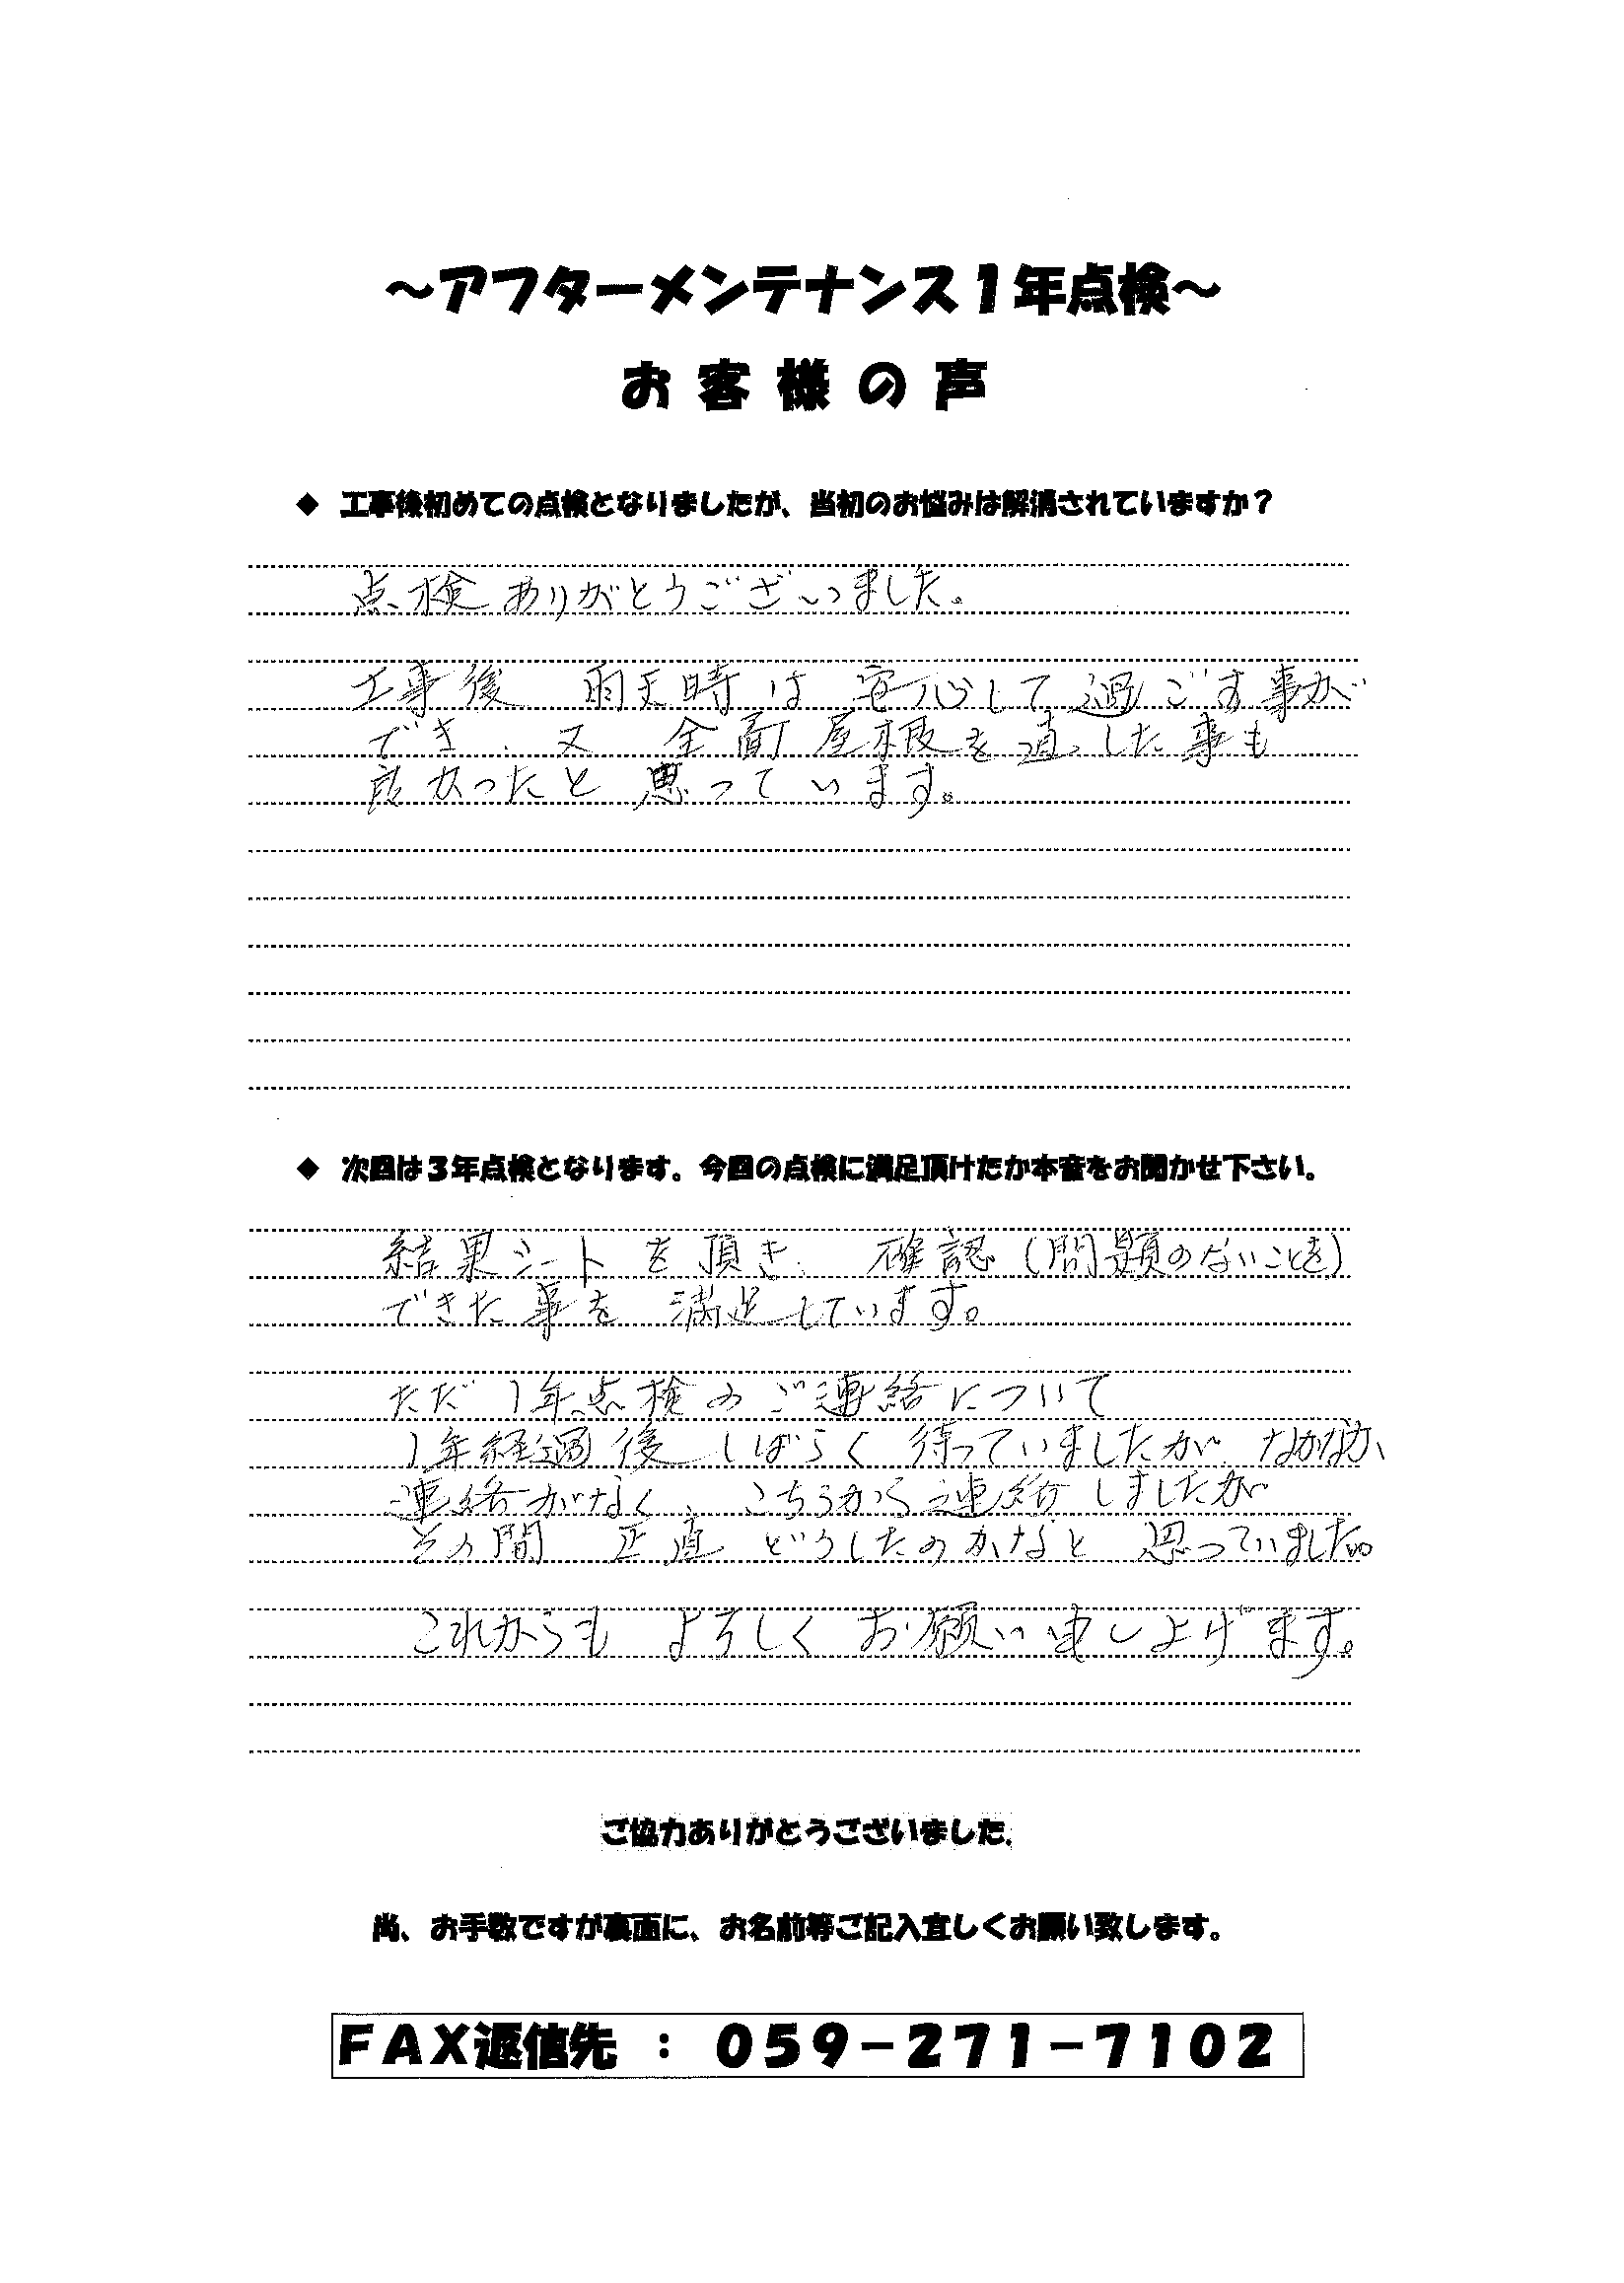 ～アフターメンテナンス１年点検～
お客様の声
◆ 工事後初めての点検となりましたが、当初のお悩みは解消されていますか？
点検ありがとうございました。
工事後 雨天時は 安心して過ごす事が
でき、又 全面屋根を直した事も
良かったと思っています。
◆ 次回は３年点検となります。今回の点検に満足頂けたか本音をお聞かせ下さい。
結果シートを頂き、確認（問題のないことを）
できた事を 満足しています。
ただ 1年点検のご連絡について
1年経過後 しばらく 待っていましたが、なかなか、
連絡がなく、こちらから連絡しましたが
その間 正直 どうしたのかなと 思っていました。
これからも よろしく お願い申し上げます。
ご協力ありがとうございました。
尚、お手数ですが裏面に、お名前等ご記入宜しくお願い致します。
ＦＡＸ返信先 ： ０５９－２７１－７１０２